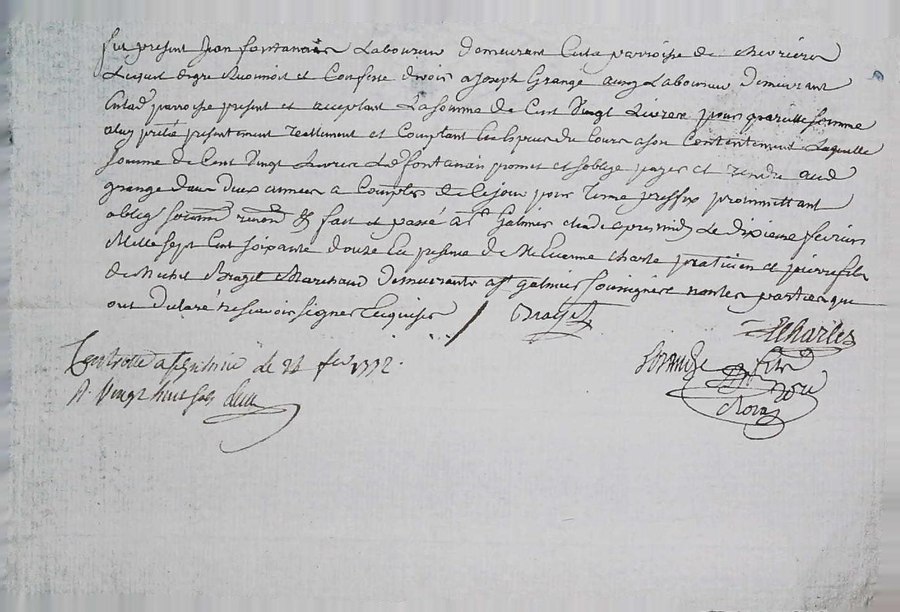 fut present Jean fontanais Laboureur demeurant En la parroisse de chevrieres
Lequel de gre Reconnoit et Confesse devoir a Joseph Grange aussy Laboureur Demeurant
En lad parroisse present et acceptant La somme de Cent Vingt Livres pour pareille somme
a luy prétée présentement reellement et Comptant En Especes du Cours a son Contentement Laquelle
somme de Cent Vingt Livres Led fontanais promet et soblige payer et rendre aud
grange dans deux années a Compter de Ce jour pour terme preffix promettant
oblig soumm renon &c fait et passé a St Galmier Etude apres midy Le dixieme fevrier
Mille sept Cent soixante douze En presence de Me Etienne Charle praticien et pierre fils
de Michel Brazet Marchand Demeurants a St galmier soussignés non les parties que
ont declaré ne scavoir signer Enquises
Brazet
ECharles
Controlle a St galmier le 21 fev 1772.
R. Vingt huit sols